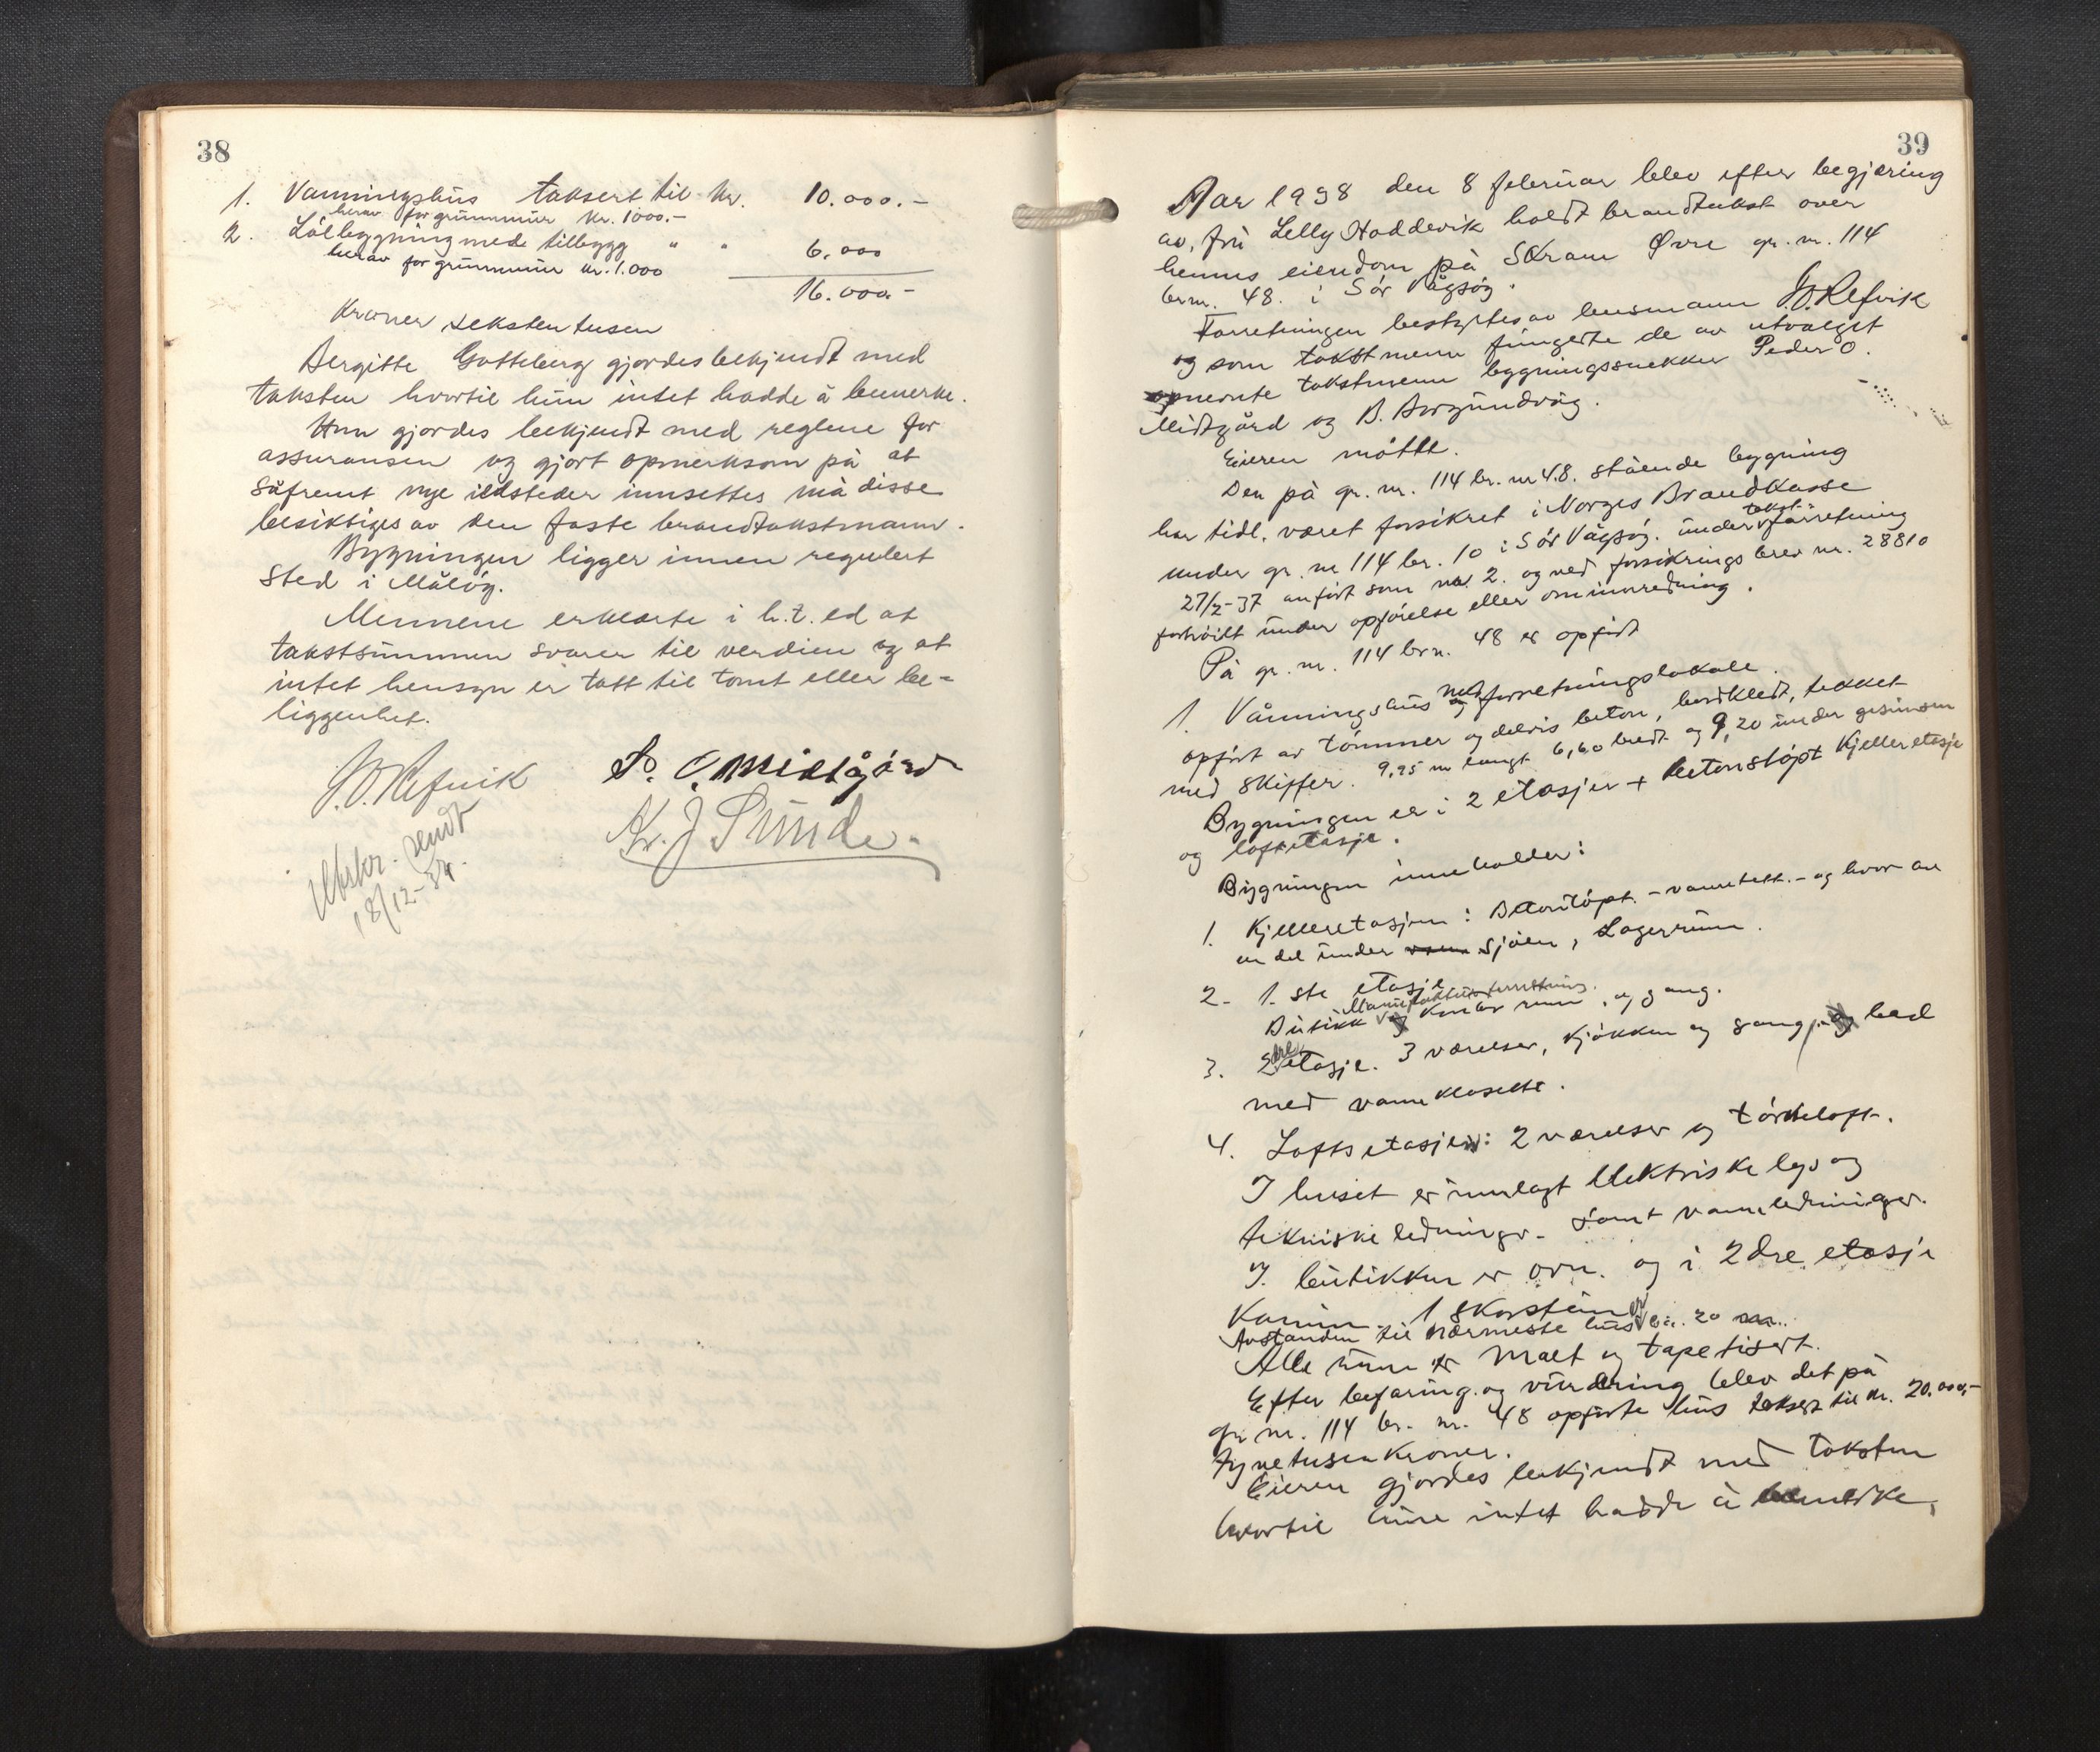 38
1. Vanningshus taksert til kr. 10.000.-
herav for grunnmur kr. 1000.-
2. Löebygning med tilbygg " " 6.000
herav for grunnmur kr. 1.000
16.000.-
Kroner sekstentusen
Bergitte Gotteberg gjordes bekjendt med
taksten hvortil hun intet hadde å bemerke.
Hun gjordes bekjendt med reglene for
assuransen og gjort opmerksom på at
såfremt nye ildsteder innsettes må disse
besiktiges av den faste brandtakstmann.
Bygningen ligger innen regulert
sted i Måløy.
Mennene erklærte i h.t. ed at
takstsummen svarer til verdien og at
intet hensyn er tatt til tomt eller be-
liggenhet.
J.O. Refvik P. O. Midtgård
Kr. J Sunde.
Utskr. sendt
18/12-34.
39
Aar 1938 den 8 februar blev efter begjæring
av, fru Lelly Hoddevik holdt brandtakst over
hennes eiendom på Skram Øvre gr. nr. 114
brnr. 48. i Sör Vågsöy.
Forretningen bestyrtes av lensmann J.O. Refvik
og som takstmenn fungerte de av utvalget
opnevnte takstmenn bygningssnekker Peder O.
Midtgård og B. Borgundvåg.
Eieren møtte.
Den på gr. nr. 114 br. nr 48. stående bygning
har tidl. været forsikret i Norges Brandkasse
under gr. nr 114 br. 10 i Sör Vågsöy. under takst-forretning
27/2-37 anfört som nr 2. og ved forsikringsbrev nr. 28810
forhöiet under opförelse eller ominnredning.
På gr. nr. 114 brn. 48 er opfört
1. Våningshus med forretningslokale.
opfört av tömmer og delvis beton, bordkledt, tekket
med skiffer. 9,95 m langt 6,60 bredt og 9,20 under gesimsen
Bygningen er i 2 etasjer + betonstöpt kjelleretasje
og loftsetasje.
Bygningen inneholder:
1. Kjelleretasjen: Betonstöpt. - vanntett. - og hvor av
en del under sjöen, Lagerrum.
2. 1.ste etasje
Manufakturforretning.
Butikk kontorrum, og gang.
3. 2dre etasje. 3 værelser, kjökken og gang, bad
med vannklosett.
4. Loftsetasjen: 2 værelser og törkeloft.
I huset er innlagt elektriske lys og
tekniske ledninger. samt vannledninger.
I butikken er ovn. og i 2dre etasje
Kamin. 1 skorstein
Avstanden til nærmeste hus er ca. 20 m.
Alle rum er malt og tapetisert.
Efter befaring og vurdering blev det på
gr. nr. 114 br. nr. 48 opförte hus taksert til kr. 20.000,-
tyvetusen kroner.
Eieren gjordes bekjendt med taksten
hvortil hun intet hadde å bemerke,